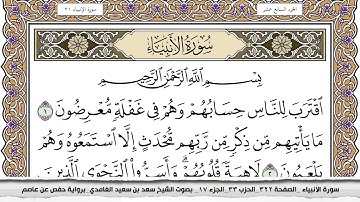 الجزء السابع عشر
سورة الأنبياء ٢١
سُورَةُ الأَنبِيَاءِ
بِسْمِ اللَّهِ الرَّحْمَٰنِ الرَّحِيمِ
اقْتَرَبَ لِلنَّاسِ حِسَابُهُمْ وَهُمْ فِي غَفْلَةٍ مُّعْرِضُونَ ١
مَا يَأْتِيهِم مِّن ذِكْرٍ مِّن رَّبِّهِم مُّحْدَثٍ إِلَّا اسْتَمَعُوهُ وَهُمْ
يَلْعَبُونَ ٢ لَاهِيَةً قُلُوبُهُمْ وَأَسَرُّوا النَّجْوَى الَّذِينَ
سورة الأنبياء _الصفحة ٣٢٢_ الحزب ٣٣_ الجزء ١٧_ بصوت الشيخ سعد بن سعيد الغامدي_ برواية حفص عن عاصم